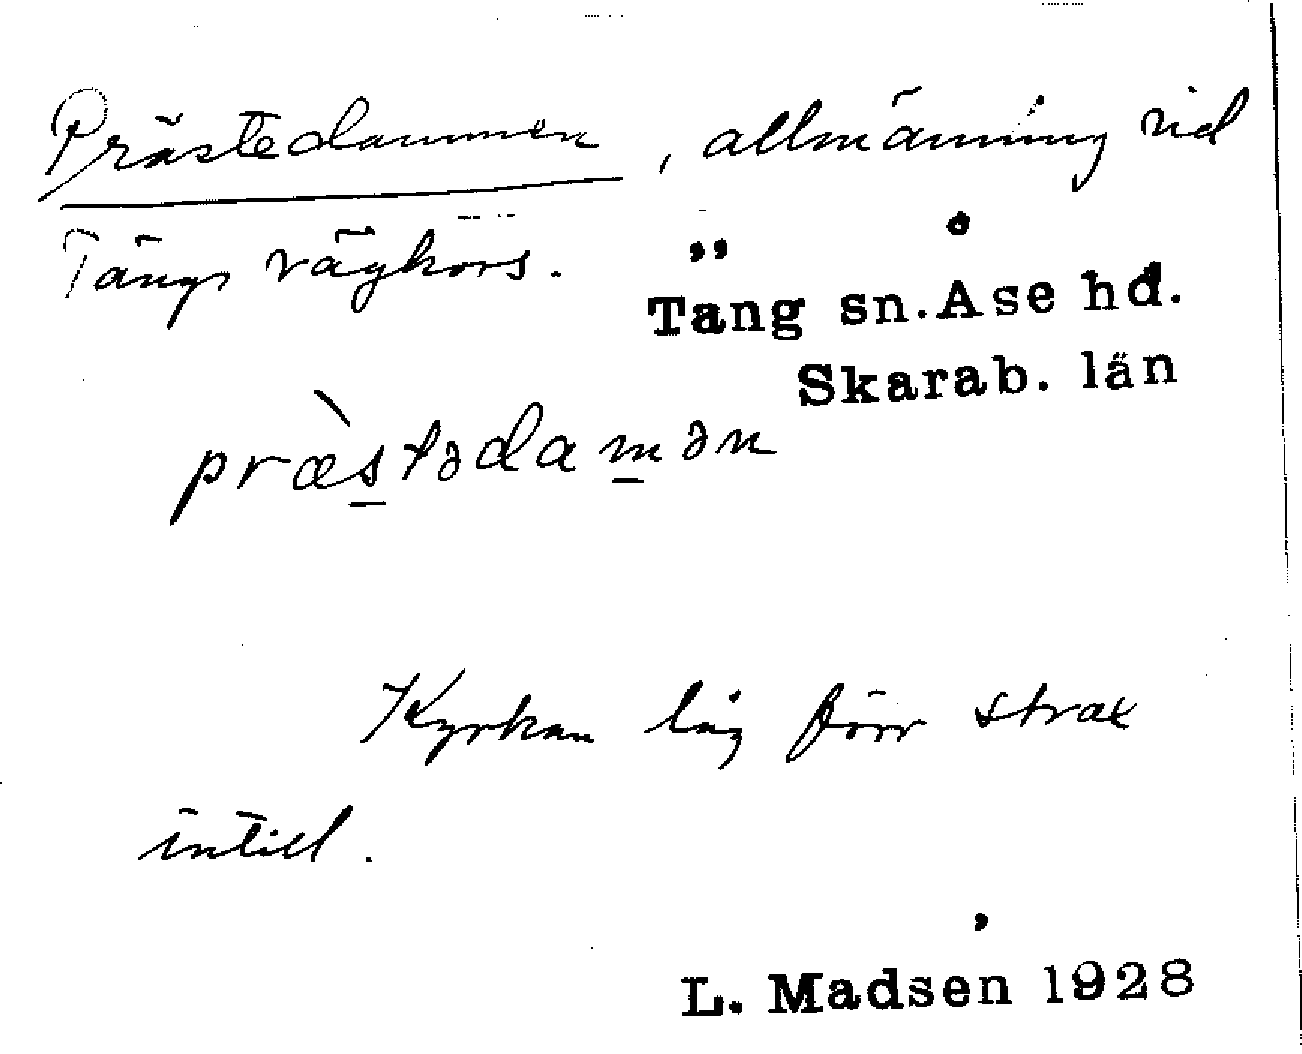 Prästedammen, allmänning vid
Tängs vägkors.
Täng sn. Åse hd.
Skarab. län
præ̀s̲tədam̲ən
Kyrkan låg förr strax
intill.
L. Madsen 1928